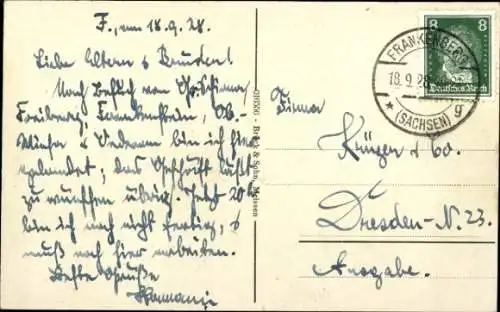 F., am 18.9.28.
Liebe Eltern & Brüder!
Nach Besuch von
Freiberg, Frankenstein, Ob.-
Wiesa & Oederan bin ich hier
gelandet; das Geschäft läßt
zu wünschen übrig. Jetzt
bin ich noch nicht fertig, &
muß noch hier arbeiten.
Beste Grüße
Brück & Sohn, Meissen
8
Deutsches Reich
FRANKENBERG
18.9.28
(SACHSEN)
g
Firma
Krüger & Co.
Dresden-N. 23.
Ausgabe.